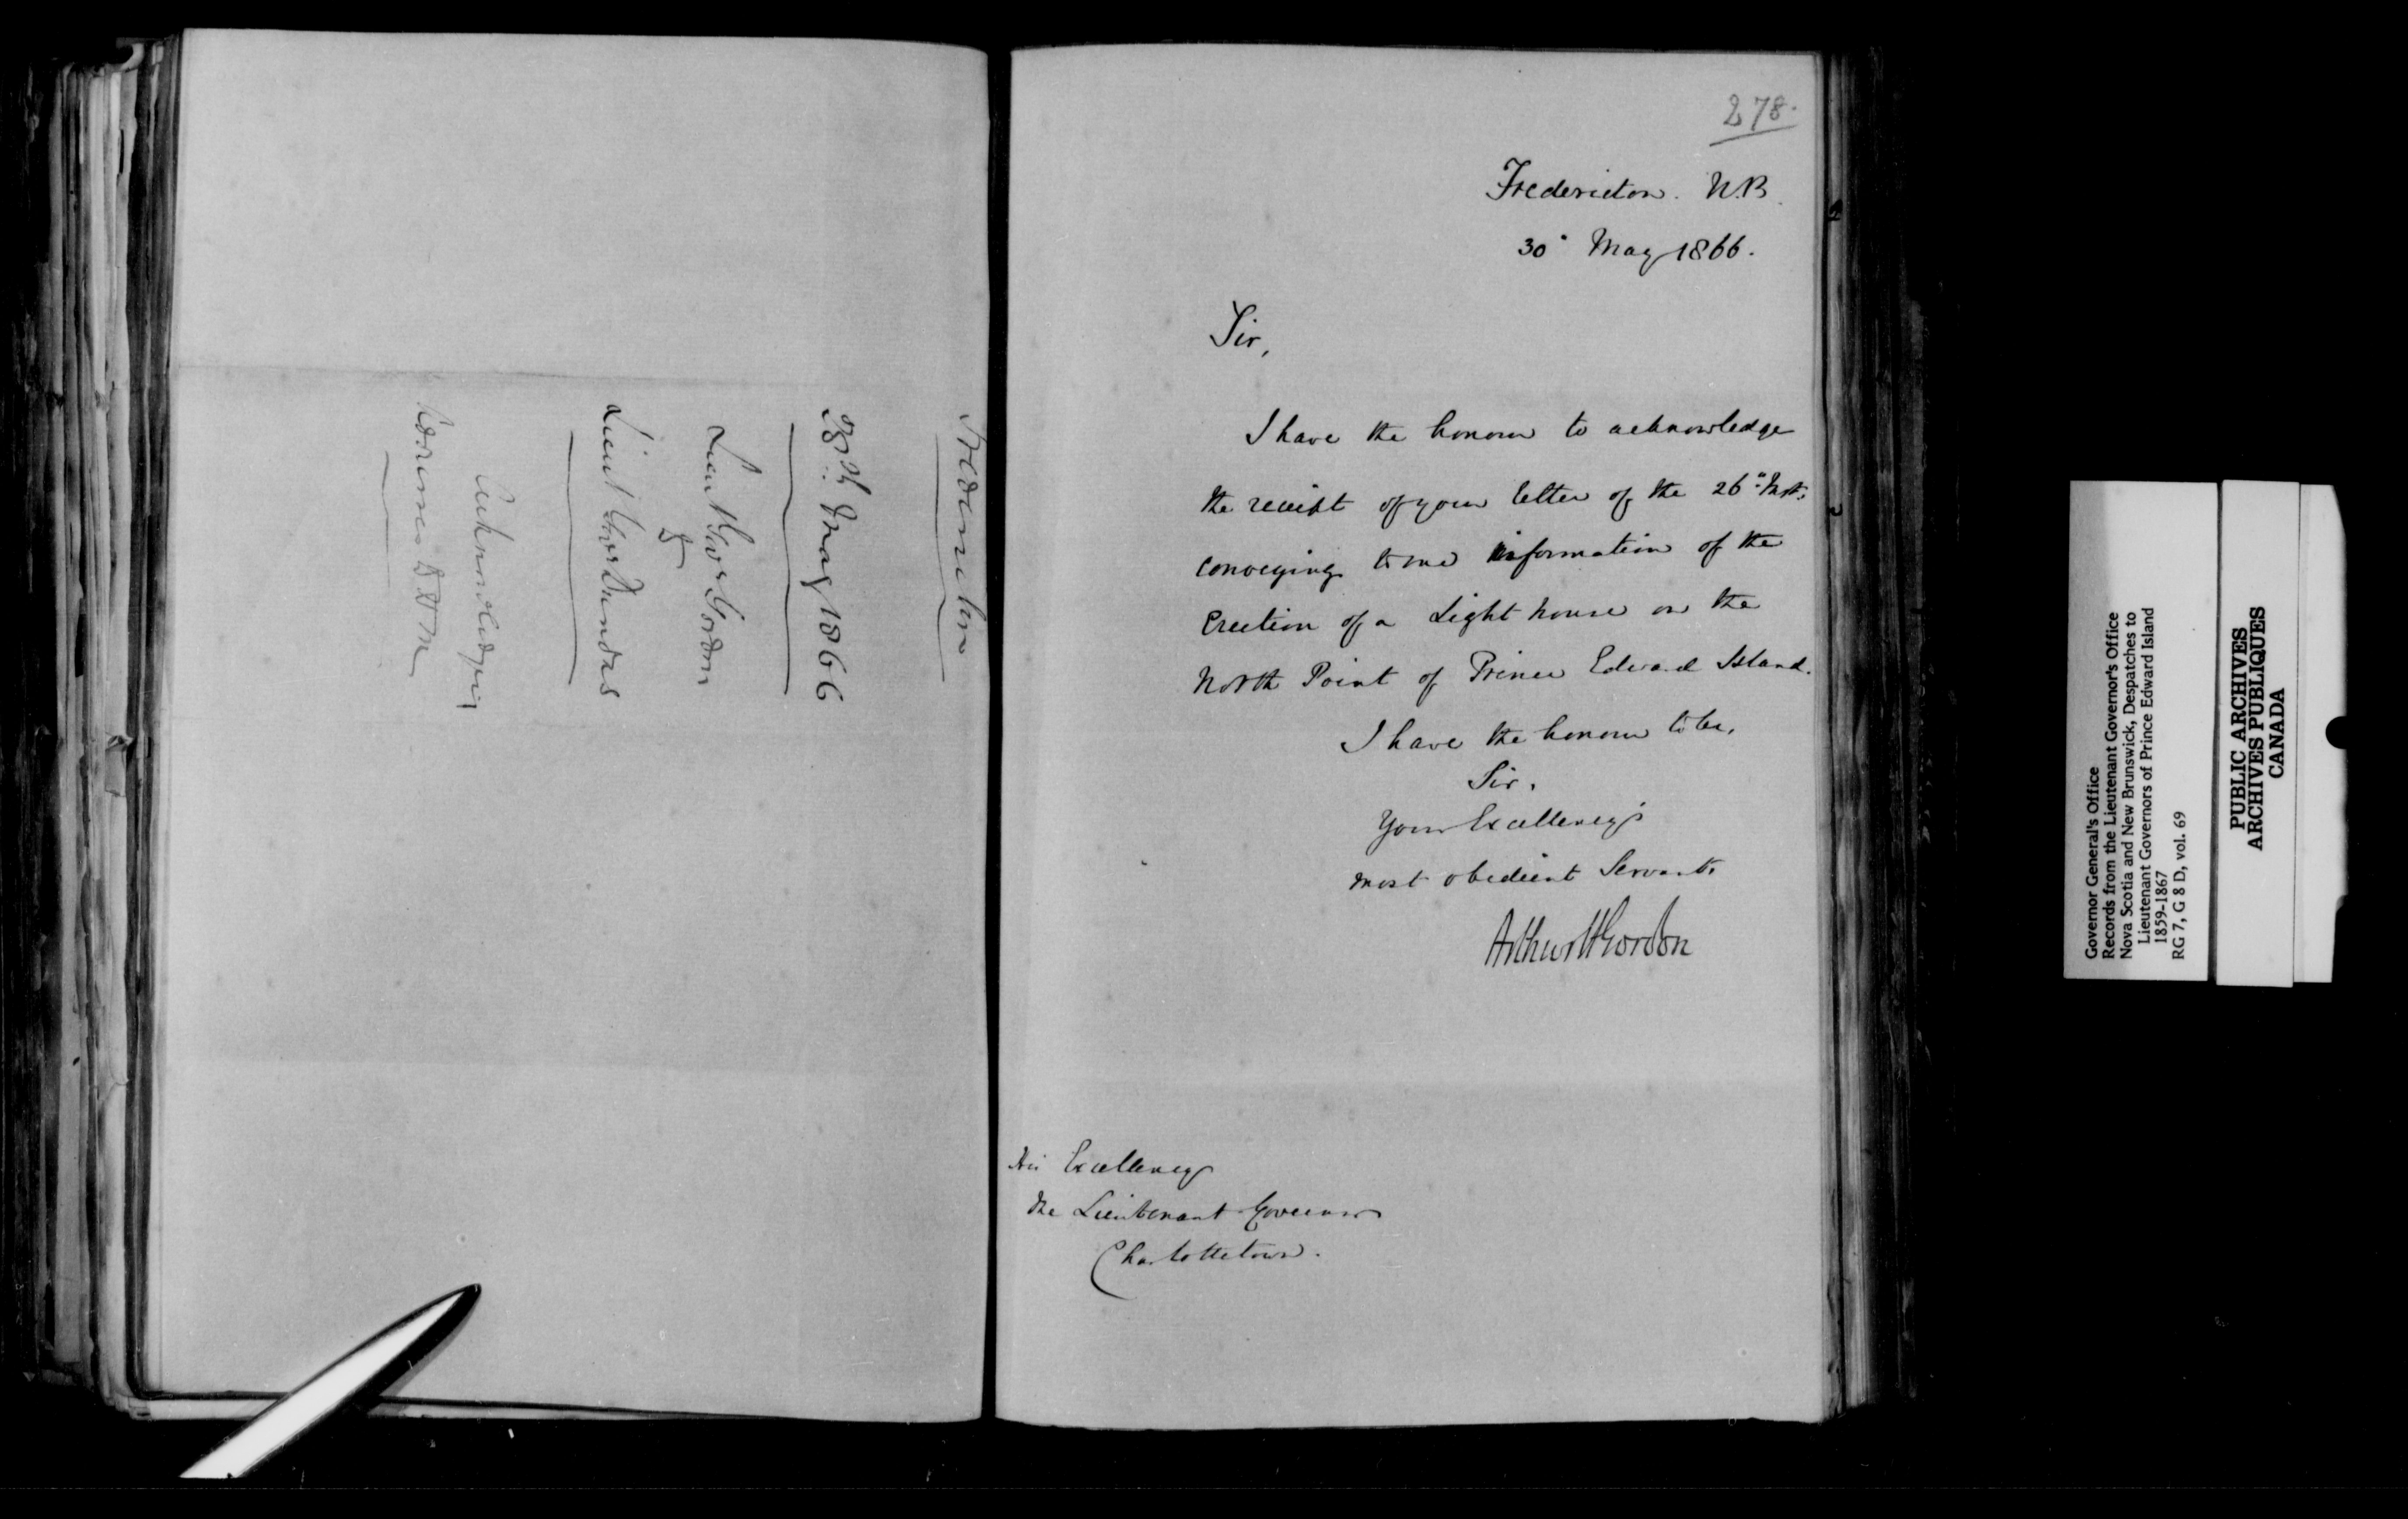 Fredericton
28th May 1866
Lieut Gov Gordon
to
Lieut Gov Dundas
Acknowledging
278.
Fredericton. N.B.
30" May 1866.
Sir,
I have the honour to acknowledge
the receipt of your letter of the 26" Inst.
conveying to me information of the
Erection of a Light house on the
North Point of Prince Edward Island.
I have the honour to be,
Sir,
Your Excellency's
most obedient Servant,
Arthur H Gordon
His Excellency
The Lieutenant Governor
Charlottetown.
Governor General's Office
Records from the Lieutenant Governor's Office
Nova Scotia and New Brunswick, Despatches to
Lieutenant Governors of Prince Edward Island
1859-1867
RG 7, G 8 D, vol. 69
PUBLIC ARCHIVES
ARCHIVES PUBLIQUES
CANADA